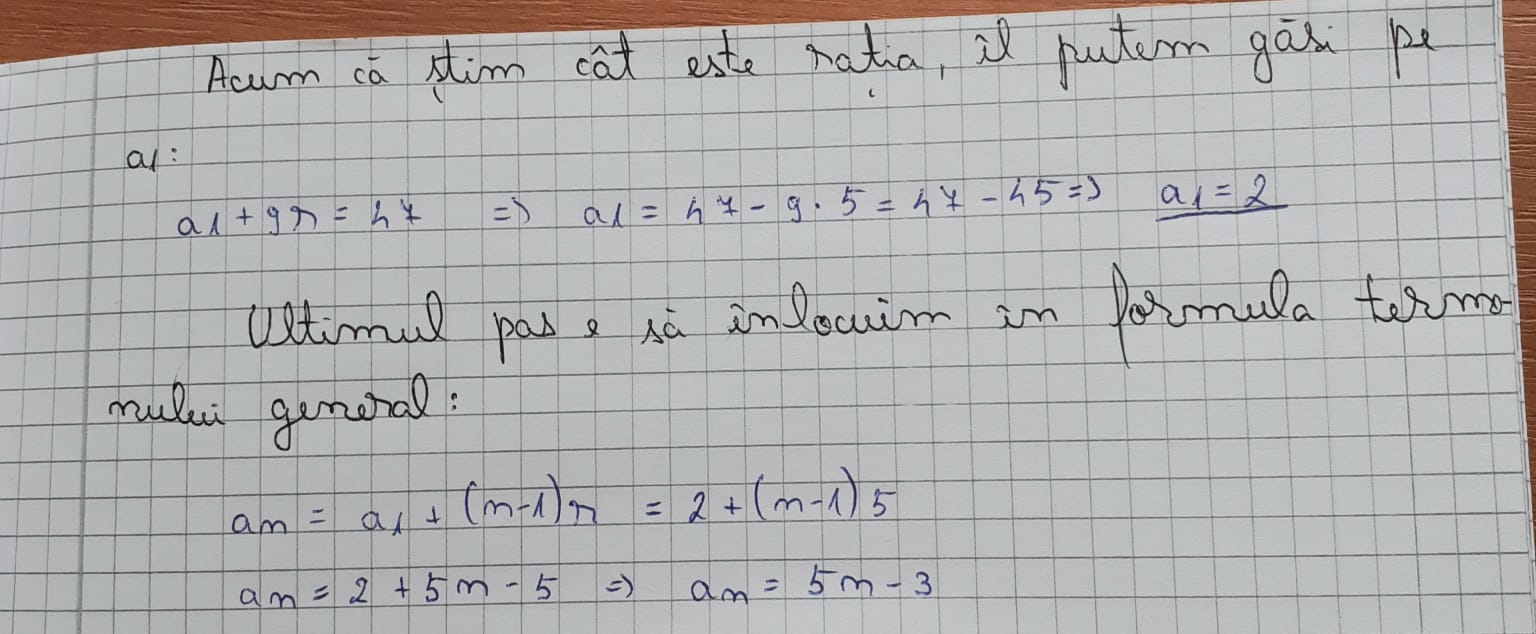 Acum că știm cât este rația, îl putem găsi pe
a1:
a1 + 9r = 47 => a1 = 47 - 9 · 5 = 47 - 45 => a1 = 2
Ultimul pas e să înlocuim în formula terme-
nului general:
an = a1 + (n-1)r = 2 + (n-1) 5
an = 2 + 5n - 5 => an = 5n - 3